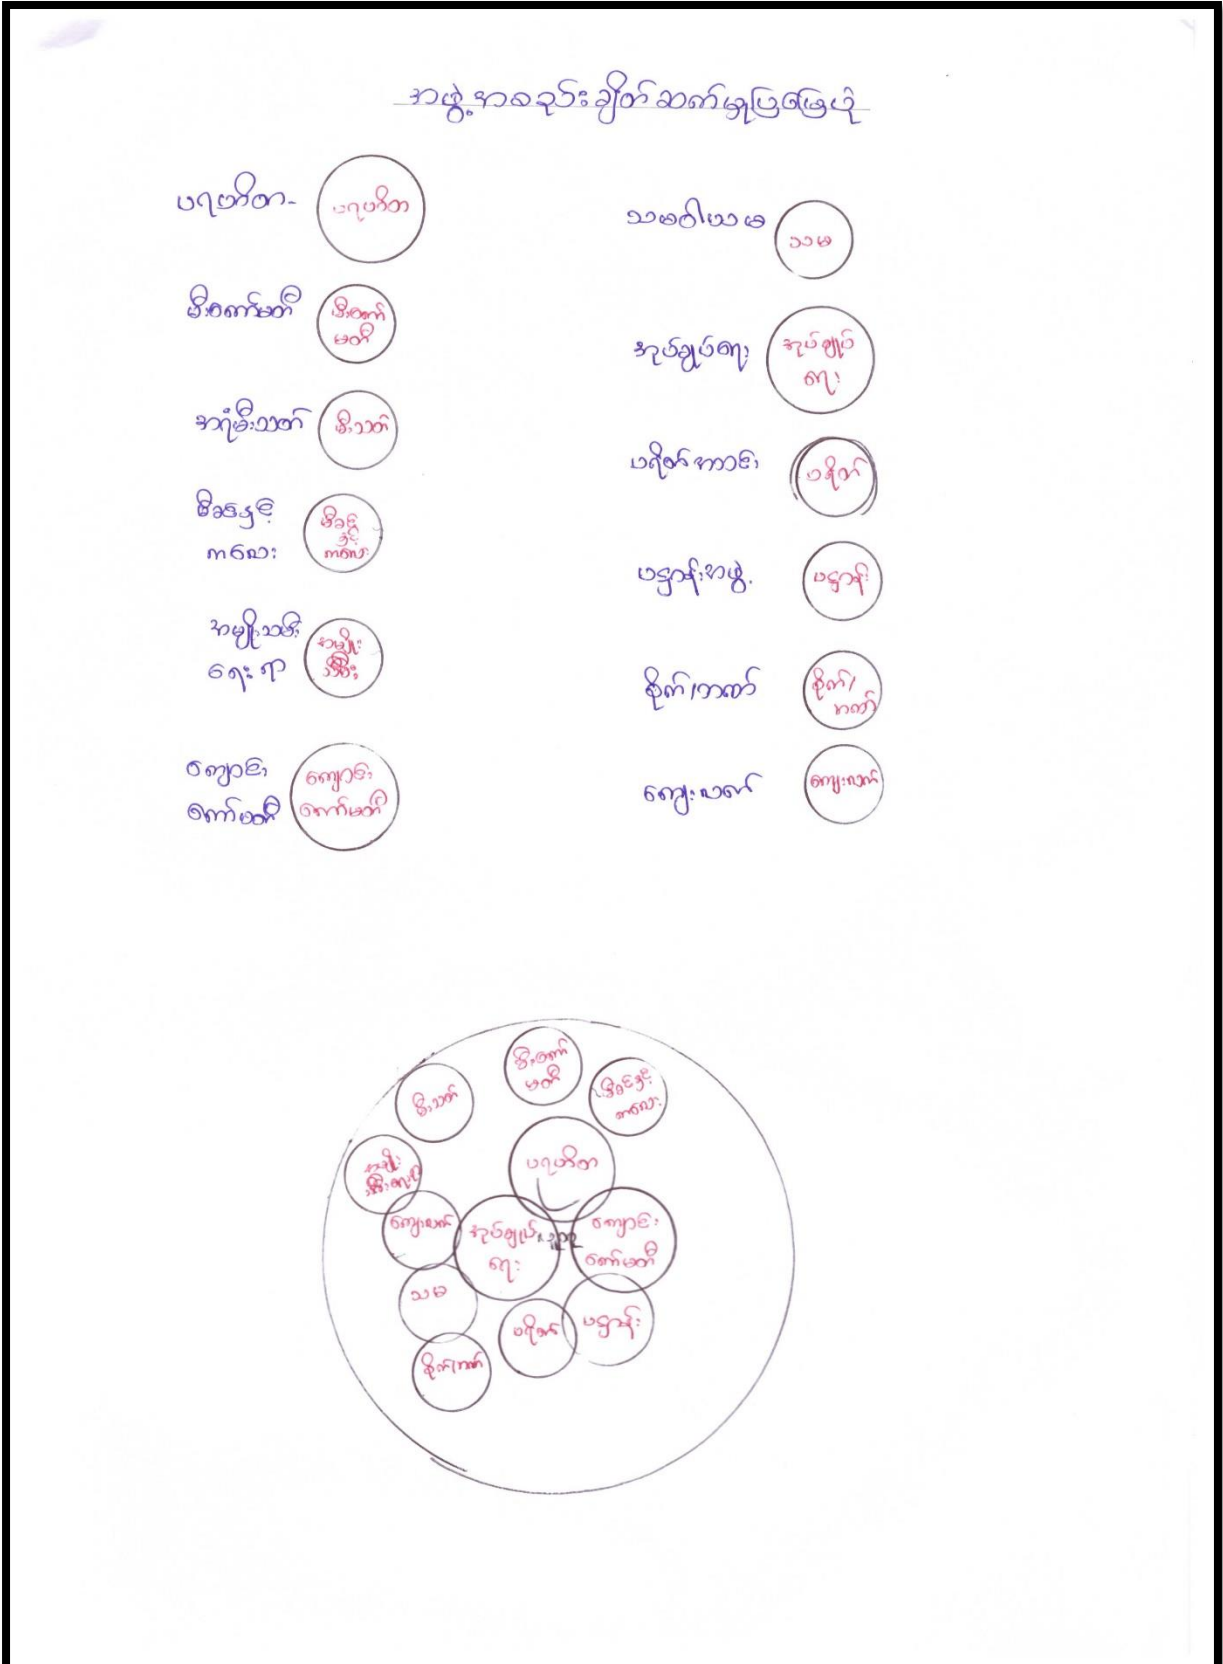 အဖွဲ့အစည်းချိတ်ဆက်မှုပြမြေပုံ
ပရဟိတ-
ပရဟိတ
မီးကော်မတီ
မီးကော်
မတီ
အရံမီးသတ်
မီးသတ်
မိခင်နှင့်
ကလေး
မိခင်
နှင့်
ကလေး
အမျိုးသမီး
ရေးရာ
အမျိုး
သမီး
ကျောင်း
ကော်မတီ
ကျောင်း
ကော်မတီ
သမဝါယမ
သမ
အုပ်ချုပ်ရေး
အုပ်ချုပ်
ရေး
ပရိတ်အသင်း
ပရိတ်
ပဋ္ဌာန်းအဖွဲ့
ပဋ္ဌာန်း
စိုက်/ဘဏ်
စိုက်/
ဘဏ်
ကျေးလက်
ကျေးလက်
မီးကော်
မတီ
မီးသတ်
မိခင်နှင့်
ကလေး
ပရဟိတ
အမျိုး
သမီးရေးရာ
ကျေးလက်
အုပ်ချုပ်
ရေး
ကျောင်း
ကော်မတီ
သမ
ပရိတ်
ပဋ္ဌာန်း
စိုက်/ဘဏ်